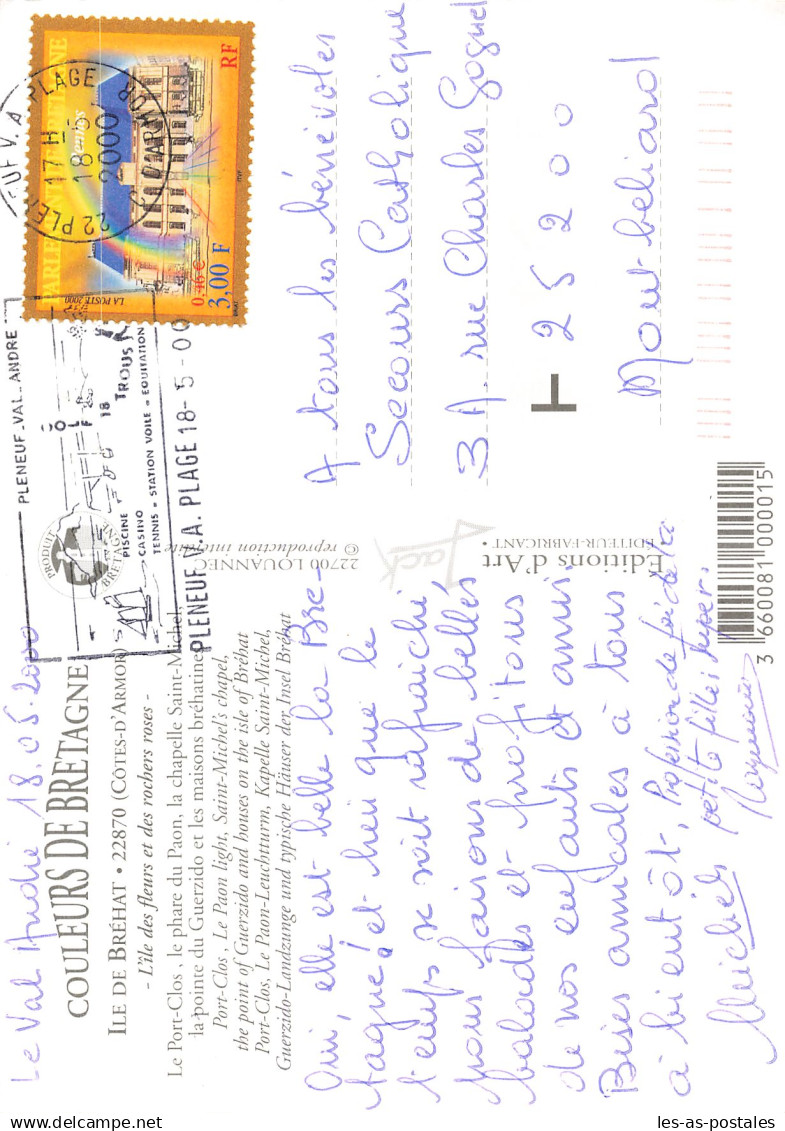 Le Val André 18.05.2000
COULEURS DE BRETAGNE
ILE DE BRÉHAT • 22870 (CÔTES-D'ARMOR)
- L'île des fleurs et des rochers roses -
Le Port-Clos : le phare du Paon, la chapelle Saint-Michel,
la pointe du Guerzido et les maisons bréhatines
Port-Clos, Le Paon light, Saint-Michel's chapel,
the point of Guerzido and houses on the isle of Bréhat
Port-Clos, Le Paon-Leuchtturm, Kapelle Saint-Michel,
Guerzido-Landzunge und typische Häuser der Insel Bréhat
Oui, elle est belle la Bre-
tagne! et bien que le
temps se soit rafraichi
nous faisons de belles
balades et profitons
de nos enfants et amis.
Bises amicales à tous
à bientôt, Profession de foi de la
petite fille super.
PRODUIT
BRETAGNE
22700 LOUANNEC
© reproduction interdite
Jack
Editions d'Art
EDITEUR-FABRICANT
3 660081 000015
PLENEUF-VAL-ANDRE
GOLF 18 TROUS
PISCINE
CASINO
TENNIS - STATION VOILE - EQUITATION
PLENEUF V.A. PLAGE 18-5-00
22 PLENEUF V.A PLAGE
17 H
18 -5
2000
C. D'ARMOR
PARLEMENT DE BRETAGNE
Rennes
RF
0,46 €
3,00 F
LA POSTE 2000
ITVF
A tous les bénévoles
Secours Catholique
3 A. rue Charles Goguel
25200
Montbéliard
les-as-postales